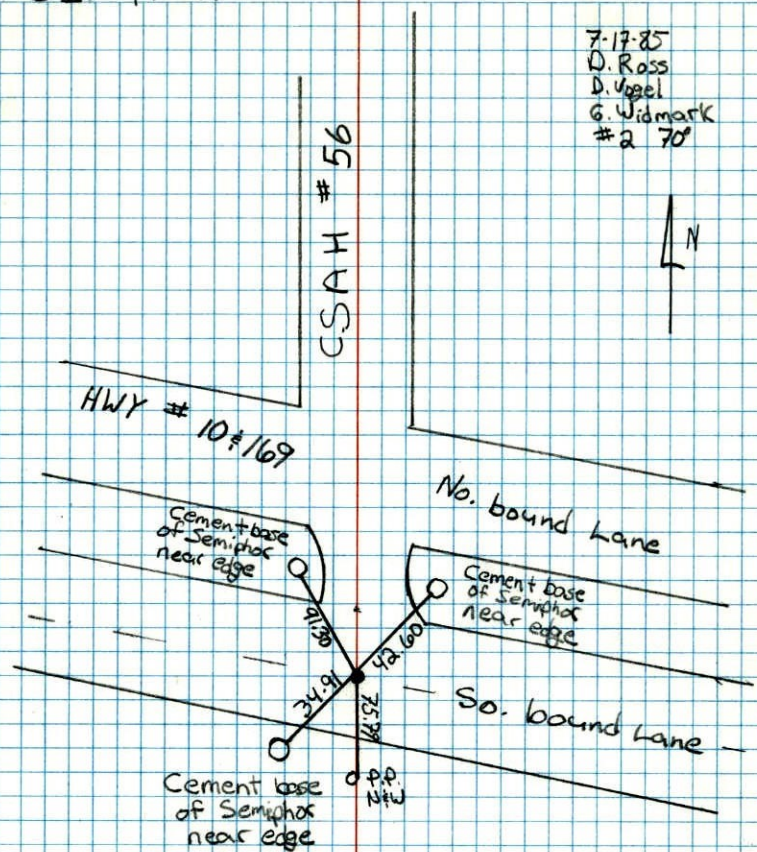 7-17-85
D. Ross
D. Vogel
G. Widmark
#2 70°
N
CSAH #56
HWY # 10 & 169
No. bound Lane
Cement base
of Semiphor
near edge
Cement base
of Semiphor
near edge
91.30
42.60
34.91
75.79
So. bound Lane
P.P.
N&W
Cement base
of Semiphor
near edge